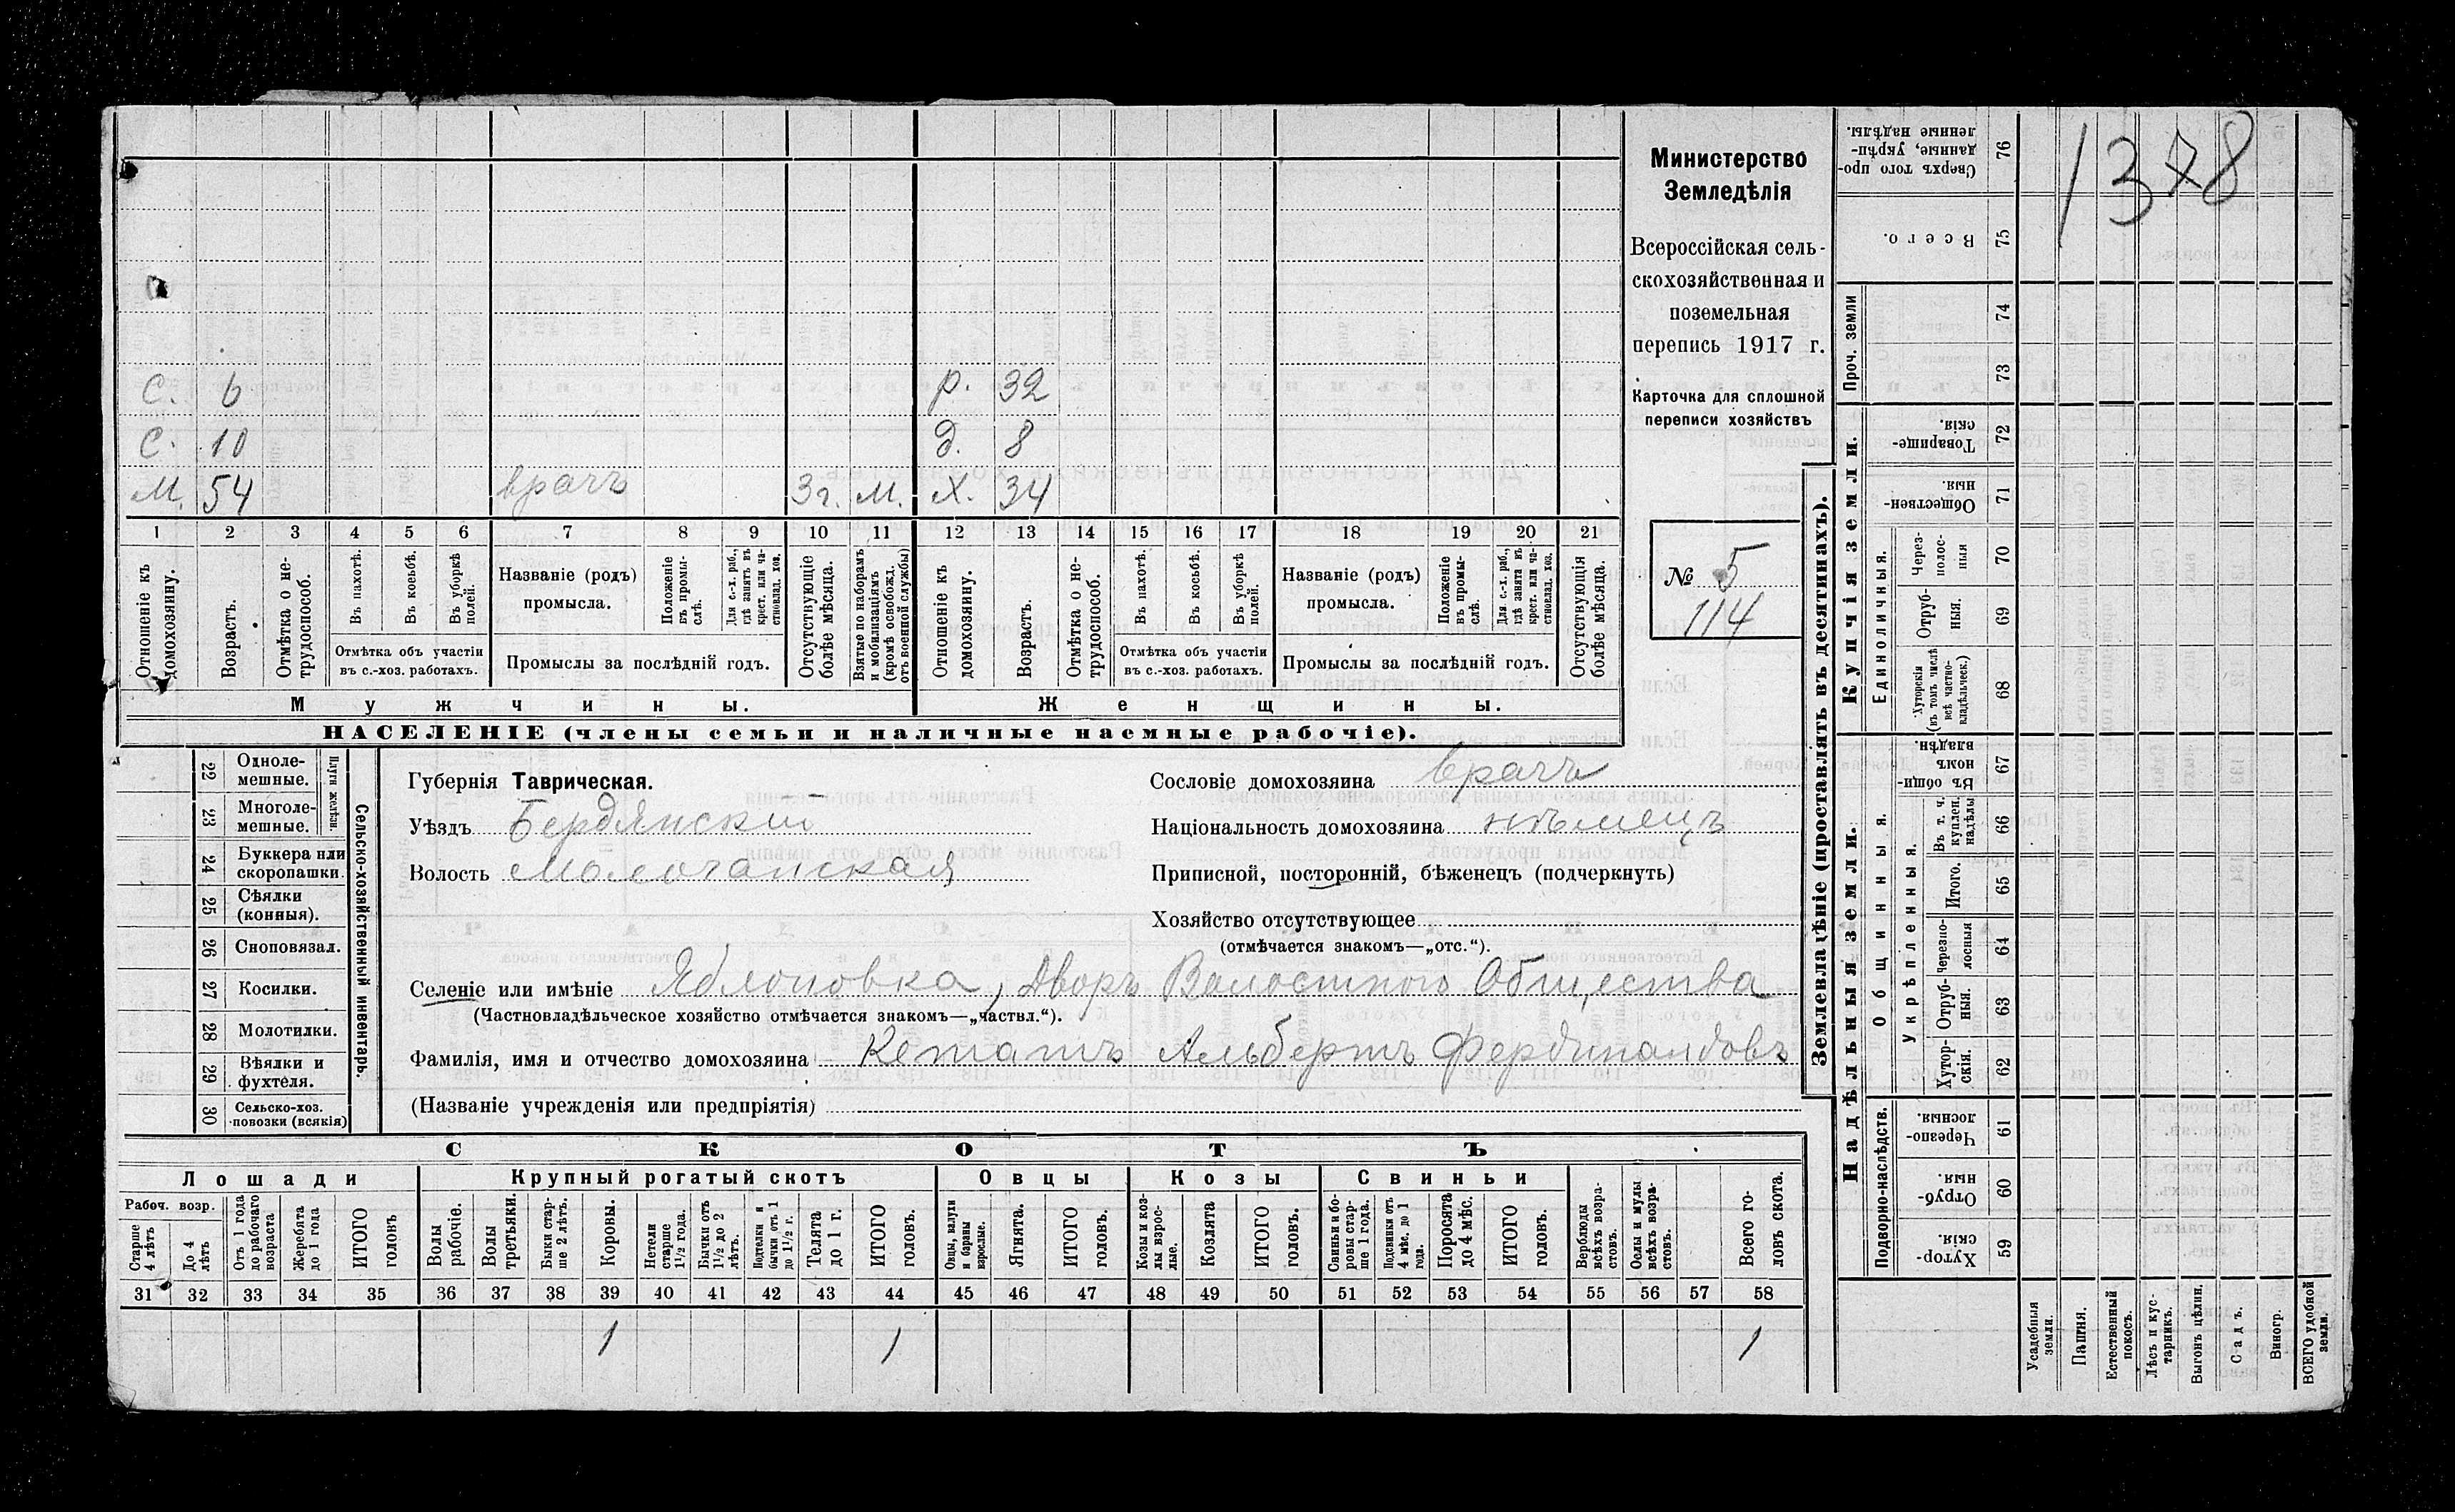 Министерство
Земледѣлія
Всероссійская сель-
скохозяйственная и
поземельная
перепись 1917 г.
Карточка для сплошной
переписи хозяйствъ
№ 5
114
1378
С. 6 р. 32
С. 10 д. 8
М. 54 врачъ 3 г. М. Х. 34
1 2 3 4 5 6 7 8 9 10 11 12 13 14 15 16 17 18 19 20 21
Отношеніе къ домохозяину.
Возрастъ.
Отмѣтка о не-трудоспособ.
Въ пахотѣ.
Въ косьбѣ.
Въ уборкѣ полей.
Отмѣтка объ участіи
въ с.-хоз. работахъ.
Названіе (родъ)
промысла.
Положеніе въ промы-слѣ.
Для с.-х. раб., гдѣ занятъ въ крест. или ча-стновлад. хоз.
Промыслы за послѣдній годъ.
Отсутствующіе болѣе мѣсяца.
Взятые по наборамъ и мобилизаціямъ (кромѣ освобожд. отъ военной службы)
Отношеніе къ домохозяину.
Возрастъ.
Отмѣтка о не-трудоспособ.
Въ пахотѣ.
Въ косьбѣ.
Въ уборкѣ полей.
Отмѣтка объ участіи
въ с.-хоз. работахъ.
Названіе (родъ)
промысла.
Положеніе въ промы-слѣ.
Для с.-х. раб., гдѣ занята въ крест. или ча-стновлад. хоз.
Промыслы за послѣдній годъ.
Отсутствующія болѣе мѣсяца.
Мужчины. Женщины.
НАСЕЛЕНІЕ (члены семьи и наличные наемные рабочіе).
22 Одноле-мешные.
23 Многоле-мешные.
Плуги желѣзн.
24 Буккера или скоропашки.
25 Сѣялки (конныя).
26 Сноповязал.
27 Косилки.
28 Молотилки.
29 Вѣялки и фухтеля.
30 Сельско-хоз. повозки (всякія)
Сельско-хозяйственный инвентарь.
Губернія Таврическая.
Уѣздъ Бердянскій
Волость Молочанская
Сословіе домохозяина врачъ
Національность домохозяина нѣмецъ
Приписной, посторонній, бѣженецъ (подчеркнуть)
Хозяйство отсутствующее
(отмѣчается знакомъ—„отс.“).
Селеніе или имѣніе Яблоновка, Дворъ Волостного Общества
(Частновладѣльческое хозяйство отмѣчается знакомъ—„частвл.“).
Фамилія, имя и отчество домохозяина Кематъ Альбертъ Фердинандовъ
(Названіе учрежденія или предпріятія)
СКОТЪ
Лошади Крупный рогатый скотъ Овцы Козы Свиньи
Рабоч. возр.
Старше 4 лѣтъ
До 4 лѣтъ
Отъ 1 года до рабочаго возраста
Жеребята до 1 года
ИТОГО головъ
Волы рабочіе.
Волы третьяки.
Быки стар-ше 2 лѣтъ.
Коровы.
Нетели старше 1½ года.
Бычки отъ 1½ до 2 лѣтъ.
Подтелки и бычки отъ 1 до 1½ г.
Телята до 1 г.
ИТОГО головъ.
Овцы, валухи и бараны взрослые.
Ягнята.
ИТОГО головъ.
Козы и коз-лы взрос-лые.
Козлята
ИТОГО головъ.
Свиньи и бо-ровы стар-ше 1 года.
Подсвинки отъ 4 мѣс. до 1 года.
Поросята до 4 мѣс.
ИТОГО головъ.
Верблюды всѣхъ возра-стовъ.
Ослы и мулы всѣхъ возра-стовъ.
Всего го-ловъ скота.
31 32 33 34 35 36 37 38 39 40 41 42 43 44 45 46 47 48 49 50 51 52 53 54 55 56 57 58
1 1 1
Землевладѣніе (проставлять въ десятинахъ).
Сверхъ того про-данные, укрѣп-ленные надѣлы. 76
Всего. 75
Проч. земли 74
73
Купчія земли.
Товарище-скія. 72
Обществен-ныя. 71
Единоличныя.
Через-полос-ныя 70
Отруб-ныя. 69
Хуторскія (въ томъ числѣ всѣ частно-владѣльческ.) 68
Надѣльныя земли.
Общинныя.
Въ общи-номъ владѣн. 67
Укрѣпленныя.
Въ т. ч. куплен. надѣлы 66
Итого. 65
Черезпо-лосныя 64
Отруб-ныя. 63
Хутор-скія. 62
Подворно-наслѣдств.
Черезпо-лосныя. 61
Отруб-ныя. 60
Хутор-скія. 59
Усадебныя земли.
Пашня.
Естественный покосъ.
Лѣсъ и кус-тарникъ.
Выгонъ цѣлин.
Садъ.
Виногр.
ВСЕГО удобной земли.